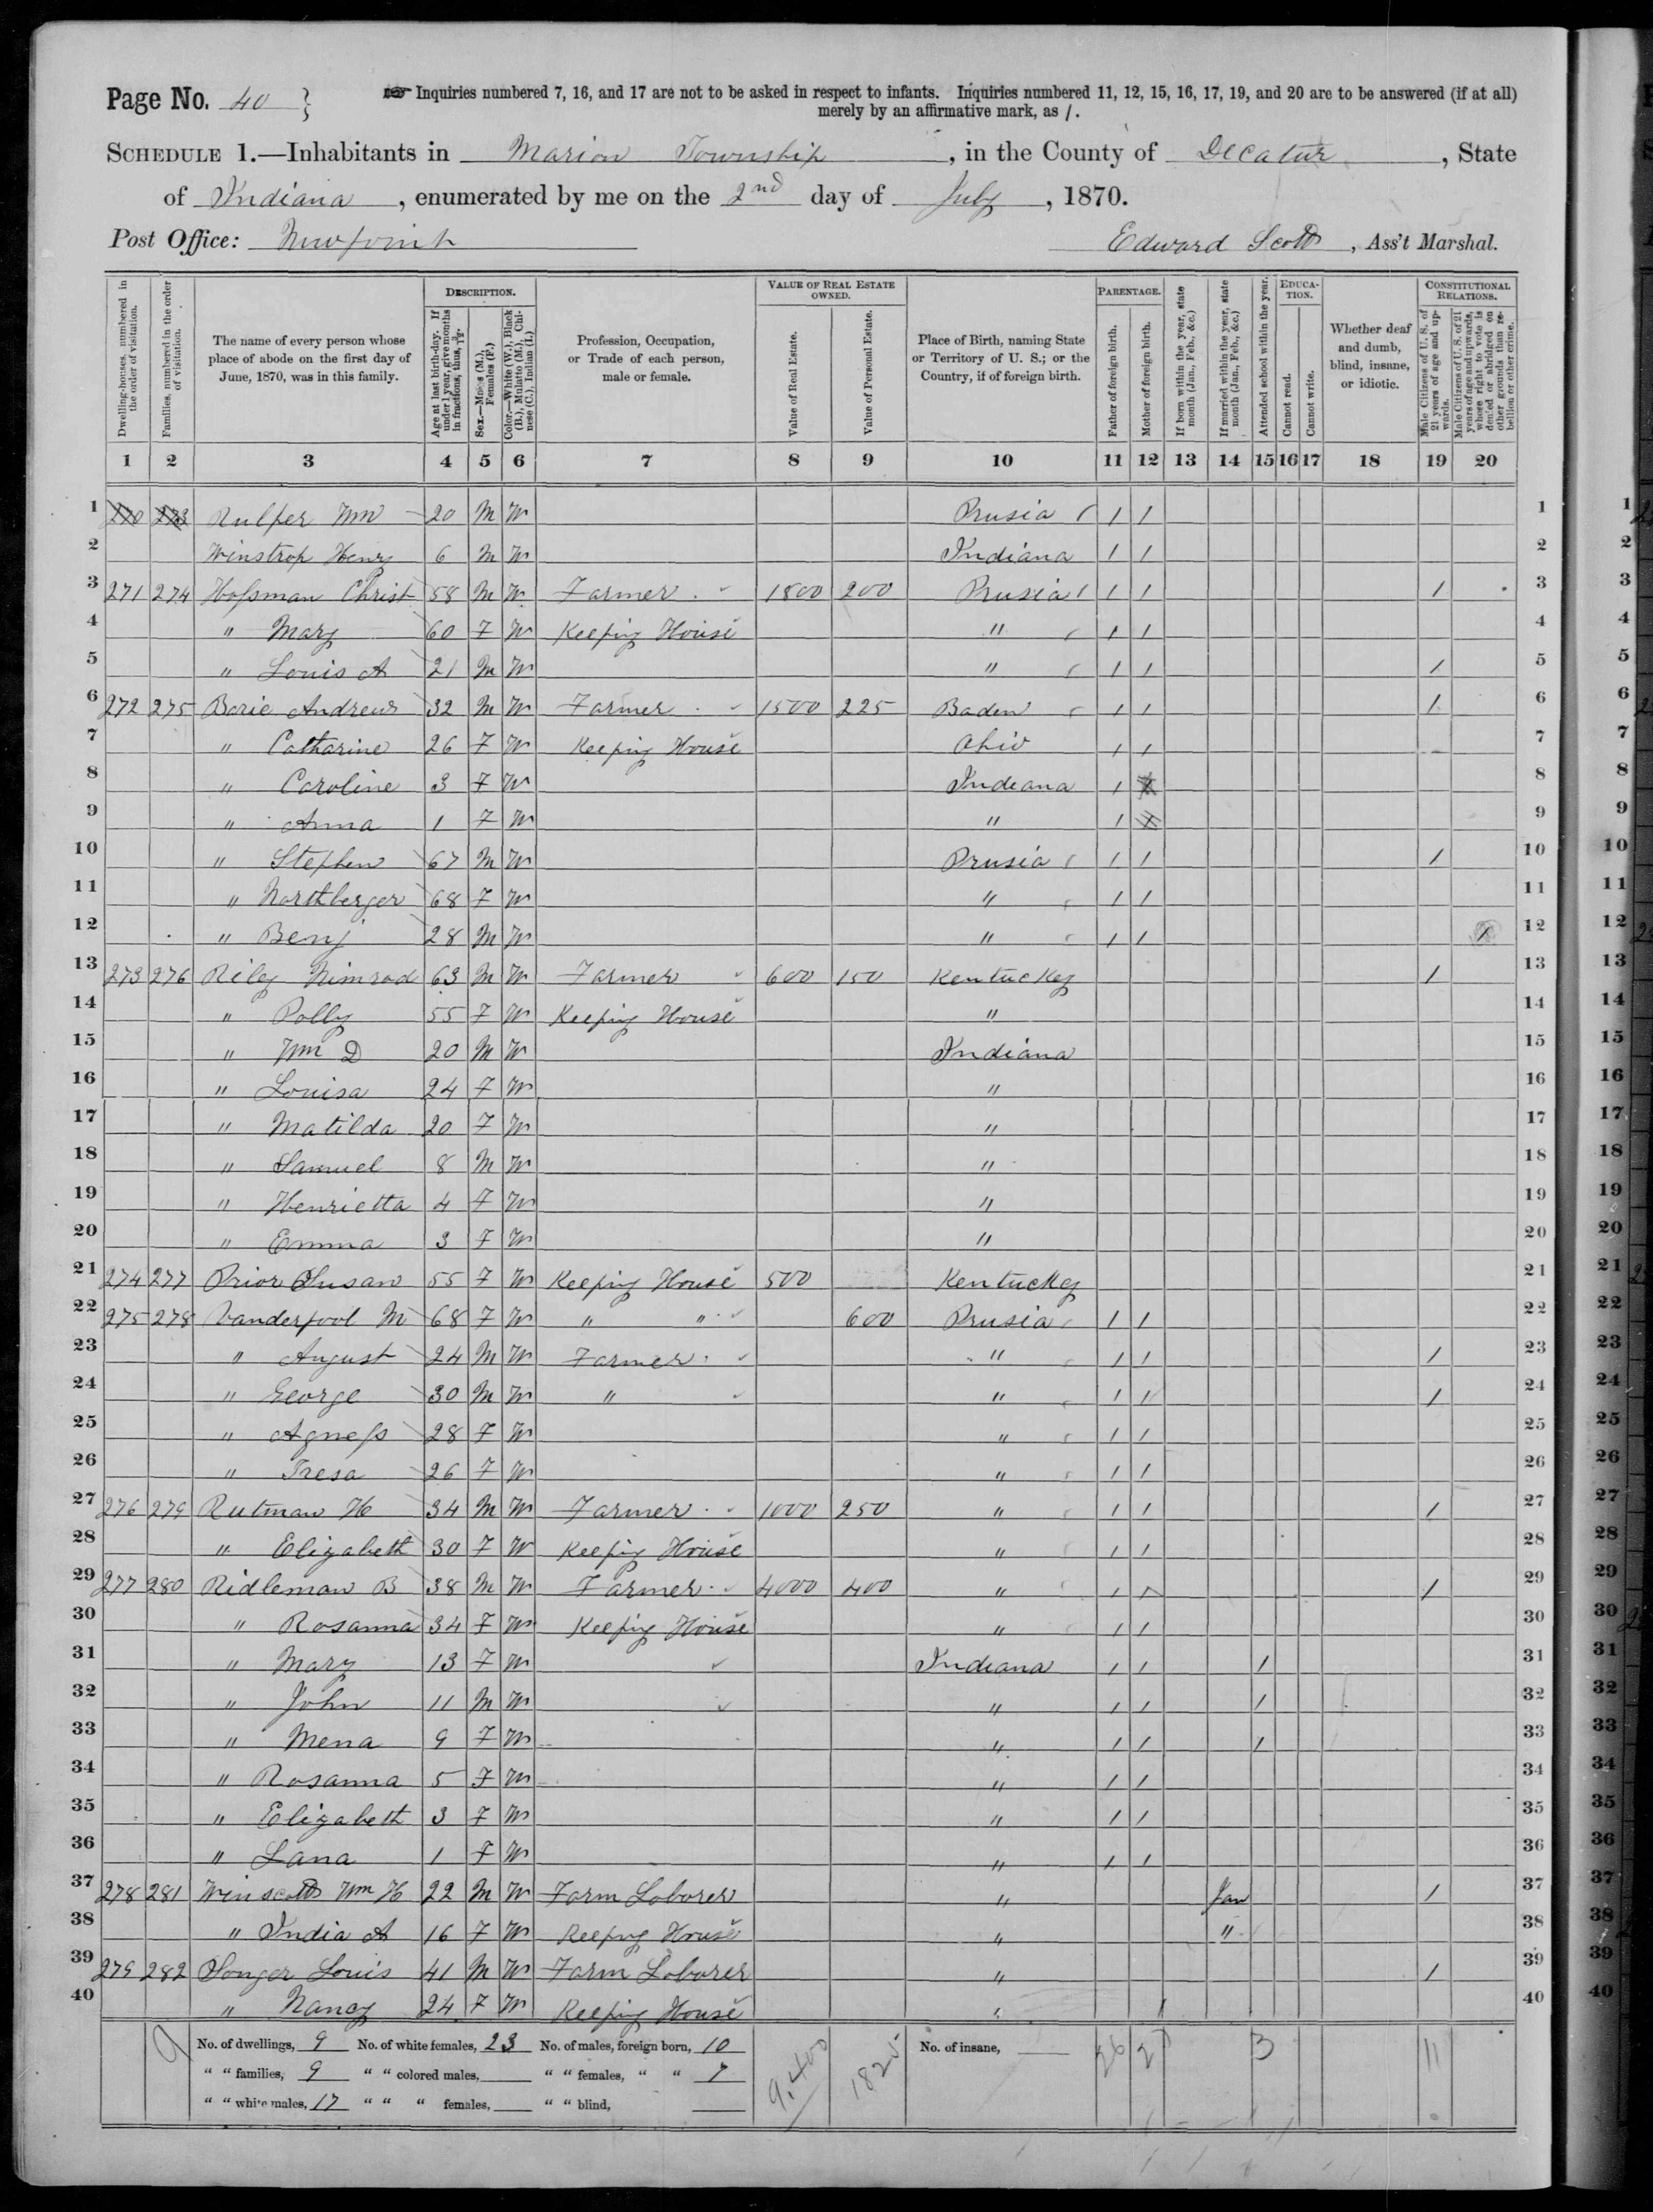 Page No. 40 }
Inquiries numbered 7, 16, and 17 are not to be asked in respect to infants. Inquiries numbered 11, 12, 15, 16, 17, 19, and 20 are to be answered (if at all)
merely by an affirmative mark, as /.
SCHEDULE 1.—Inhabitants in Marion Township, in the County of Decatur, State
of Indiana, enumerated by me on the 2nd day of July, 1870.
Post Office: Newpoint
Edward Scott, Ass't Marshal.
DESCRIPTION. VALUE OF REAL ESTATE OWNED. PARENTAGE. EDUCATION. CONSTITUTIONAL RELATIONS.
Dwelling-houses, numbered in the order of visitation.
Families, numbered in the order of visitation.
The name of every person whose place of abode on the first day of June, 1870, was in this family.
Age at last birth-day. If under 1 year, give months in fractions, thus, 3/12.
Sex.—Males (M.), Females (F.)
Color.—White (W.), Black (B.), Mulatto (M.), Chinese (C.), Indian (I.)
Profession, Occupation, or Trade of each person, male or female.
Value of Real Estate.
Value of Personal Estate.
Place of Birth, naming State or Territory of U. S.; or the Country, if of foreign birth.
Father of foreign birth.
Mother of foreign birth.
If born within the year, state month (Jan., Feb., &c.)
If married within the year, state month (Jan., Feb., &c.)
Attended school within the year.
Cannot read.
Cannot write.
Whether deaf and dumb, blind, insane, or idiotic.
Male Citizens of U. S. of 21 years of age and upwards.
Male Citizens of U. S. of 21 years of age and upwards, whose right to vote is denied or abridged on other grounds than rebellion or other crime.
1 2 3 4 5 6 7 8 9 10 11 12 13 14 15 16 17 18 19 20
1 270 273 Rulfer Wm 20 M W Prusia / / 1
2 Winstrop Henry 6 M W Indiana / / 2
3 271 274 Hofsman Christ 58 M W Farmer 1800 200 Prusia / / / 3
4 " Mary 60 F W Keeping House " / / 4
5 " Louis A 21 M W " / / / 5
6 272 275 Borie Andrew 32 M W Farmer 1500 225 Baden / / / 6
7 " Catharine 26 F W Keeping House Ohio / / 7
8 " Caroline 3 F W Indiana / 8
9 " Anna 1 F W " / 9
10 " Stephen 67 M W Prusia / / / 10
11 " Northberger 68 F W " / / 11
12 " Benj 28 M W " / / / 12
13 273 276 Riley Nimrod 63 M W Farmer 600 150 Kentuckey / 13
14 " Polly 55 F W Keeping House " 14
15 " Wm D 20 M W Indiana 15
16 " Louisa 24 F W " 16
17 " Matilda 20 F W " 17
18 " Samuel 8 M W " 18
19 " Henrietta 4 F W " 19
20 " Emma 3 F W " 20
21 274 277 Prior Susan 55 F W Keeping House 500 Kentuckey 21
22 275 278 Vanderpool M 68 F W " " 600 Prusia / / 22
23 " August 24 M W Farmer " / / / 23
24 " George 30 M W " " / / / 24
25 " Agness 28 F W " / / 25
26 " Tresa 26 F W " / / 26
27 276 279 Rutman H 34 M W Farmer 1000 250 " / / / 27
28 " Elizabeth 30 F W Keeping House " / / 28
29 277 280 Ridleman B 38 M W Farmer 4000 400 " / / / 29
30 " Rosanna 34 F W Keeping House " / / 30
31 " Mary 13 F W Indiana / / / 31
32 " John 11 M W " / / / 32
33 " Mena 9 F W " / / / 33
34 " Rosanna 5 F W " / / 34
35 " Elizabeth 3 F W " / / 35
36 " Lana 1 F W " / / 36
37 278 281 Winscott Wm H 22 M W Farm Laborer " Jan / 37
38 " India A 16 F W Keeping House " " 38
39 279 282 Songer Louis 41 M W Farm Laborer " / 39
40 " Nancy 24 F W Keeping House " / 40
9 No. of dwellings, 9 No. of white females, 23 No. of males, foreign born, 10 9,400 1825 No. of insane, 26 27 3 11
" " families, 9 " " colored males, " " females, " " 7
" " white males, 17 " " " females, " " blind,